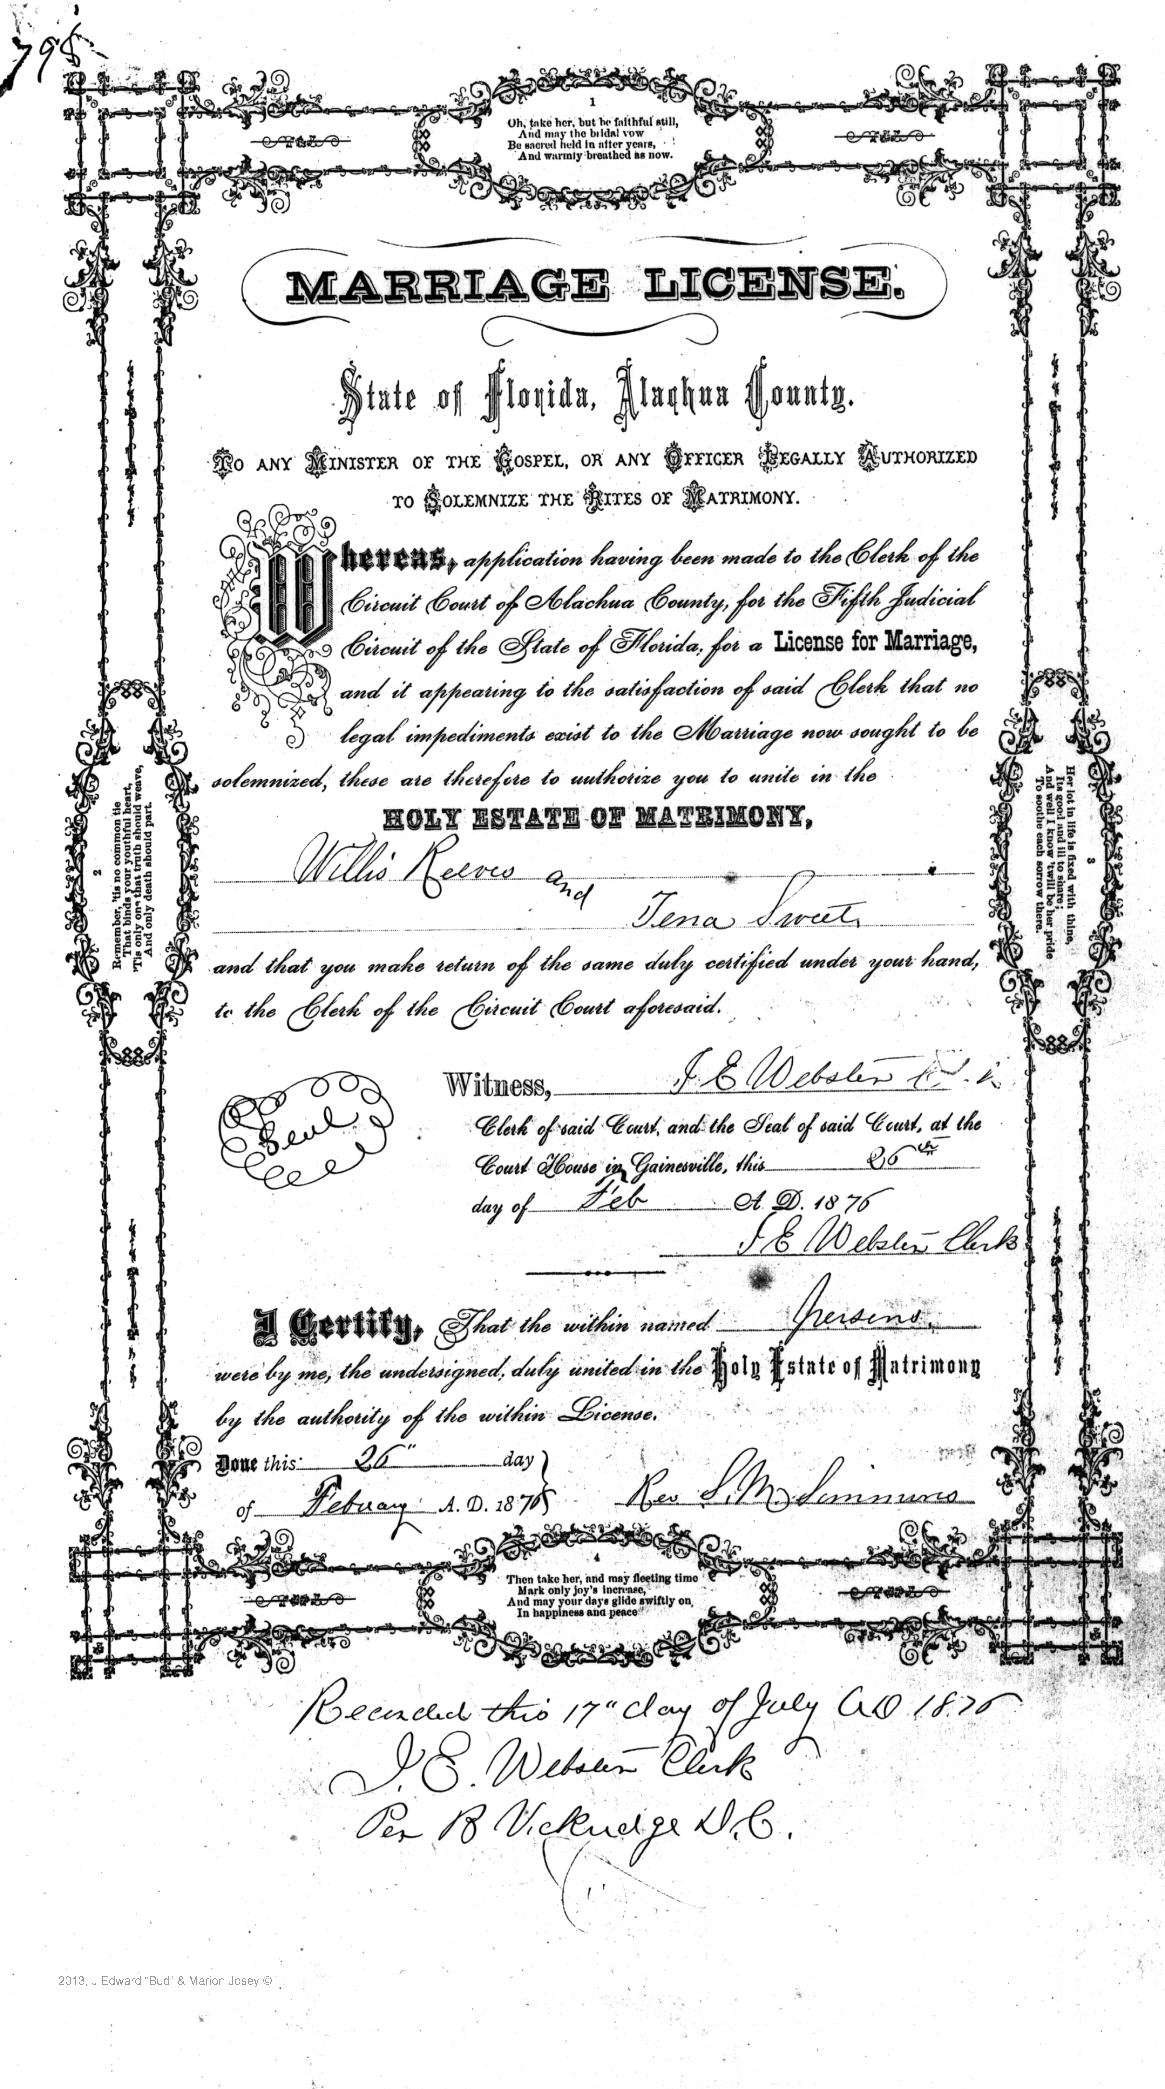 798
1
Oh, take her, but be faithful still,
And may the bridal vow
Be sacred held in after years,
And warmly breathed as now.
MARRIAGE LICENSE.
State of Florida, Alachua County.
TO ANY MINISTER OF THE GOSPEL, OR ANY OFFICER LEGALLY AUTHORIZED
TO SOLEMNIZE THE RITES OF MATRIMONY.
Whereas, application having been made to the Clerk of the
Circuit Court of Alachua County, for the Fifth Judicial
Circuit of the State of Florida, for a License for Marriage,
and it appearing to the satisfaction of said Clerk that no
legal impediments exist to the Marriage now sought to be
solemnized, these are therefore to authorize you to unite in the
HOLY ESTATE OF MATRIMONY,
Willis Reeves and
Tena Sweet
and that you make return of the same duly certified under your hand,
to the Clerk of the Circuit Court aforesaid.
2
Remember, 'tis no common tie
That binds your youthful heart,
'Tis only one that truth should weave,
And only death should part.
3
Her lot in life is fixed with thine,
Its good and ill to share;
And well I know 'twill be her pride
To soothe each sorrow there.
Seal
Witness, J E Webster
Clerk of said Court, and the Seal of said Court, at the
Court House in Gainesville, this 26th
day of Feb A. D. 1876
J E Webster Clerk
I Certify, That the within named Persons
were by me, the undersigned, duly united in the Holy Estate of Matrimony
by the authority of the within License.
Done this 26" day
of Febuary A. D. 1876
Rev S. M. Simmons
4
Then take her, and may fleeting time
Mark only joy's increase,
And may your days glide swiftly on,
In happiness and peace
Recorded this 17" day of July AD 1876
J. E. Webster Clerk
Per B D.C.
2013, J Edward "Bud" & Marion Josey ©